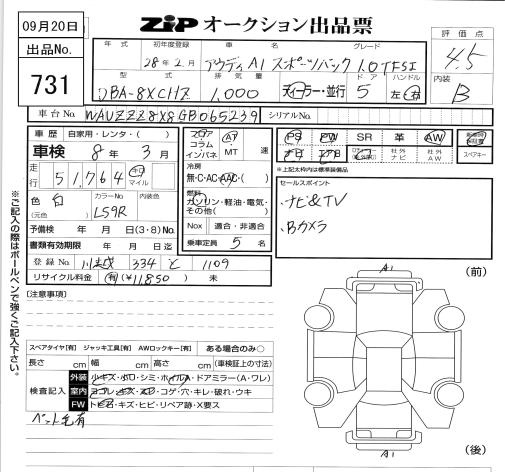 09月20日
出品No.
731
ZIP オークション出品票
評価点
4.5
内装
B
年式 初年度登録 車名 グレード
28年2月 アウディ A1 スポーツバック 1.0TFSI
型式 排気量 ドア ハンドル
DBA-8XCHZ 1,000 ディーラー・並行 5 左・右
車台No. WAUZZZ8X8GB065239 シリアルNo.
車歴 自家用・レンタ・( )
車検 8年3月
走行 51,764 キロ マイル
色 白 カラーNo L59R 内装色
(元色)
予備検 年 月 日(3・8)No.
書類有効期限 年 月 日迄
登録No. 川崎 334 と 1109
リサイクル料金 有(¥11850) 未
フロア コラム インパネ
AT MT 速
冷房
無・C・AC・AAC・( )
燃料
ガソリン・軽油・電気・その他( )
Nox 適合・非適合
乗車定員 5名
PS PW SR 革 AW
社外ナビ 社外AW スペアキー
※上記太枠内は標準装備品
セールスポイント
・ナビ&TV
・Bカメラ
[注意事項]
※ご記入の際はボールペンで強くご記入下さい。
スペアタイヤ[有] ジャッキ工具[有] AWロックキー[有] ある場合のみ〇
長さ cm 幅 cm 高さ cm (車検証上の寸法)
検査記入
外装 小キズ・小凹・シミ・ホイルA・ドアミラー(A・ワレ)
室内 ヨゴレ・キズ・スレ・コゲ・穴・キレ・破れ・ウキ
FW トビ石・キズ・ヒビ・リペア跡・X要ス
ペット毛有
(前)
A1
A1
(後)